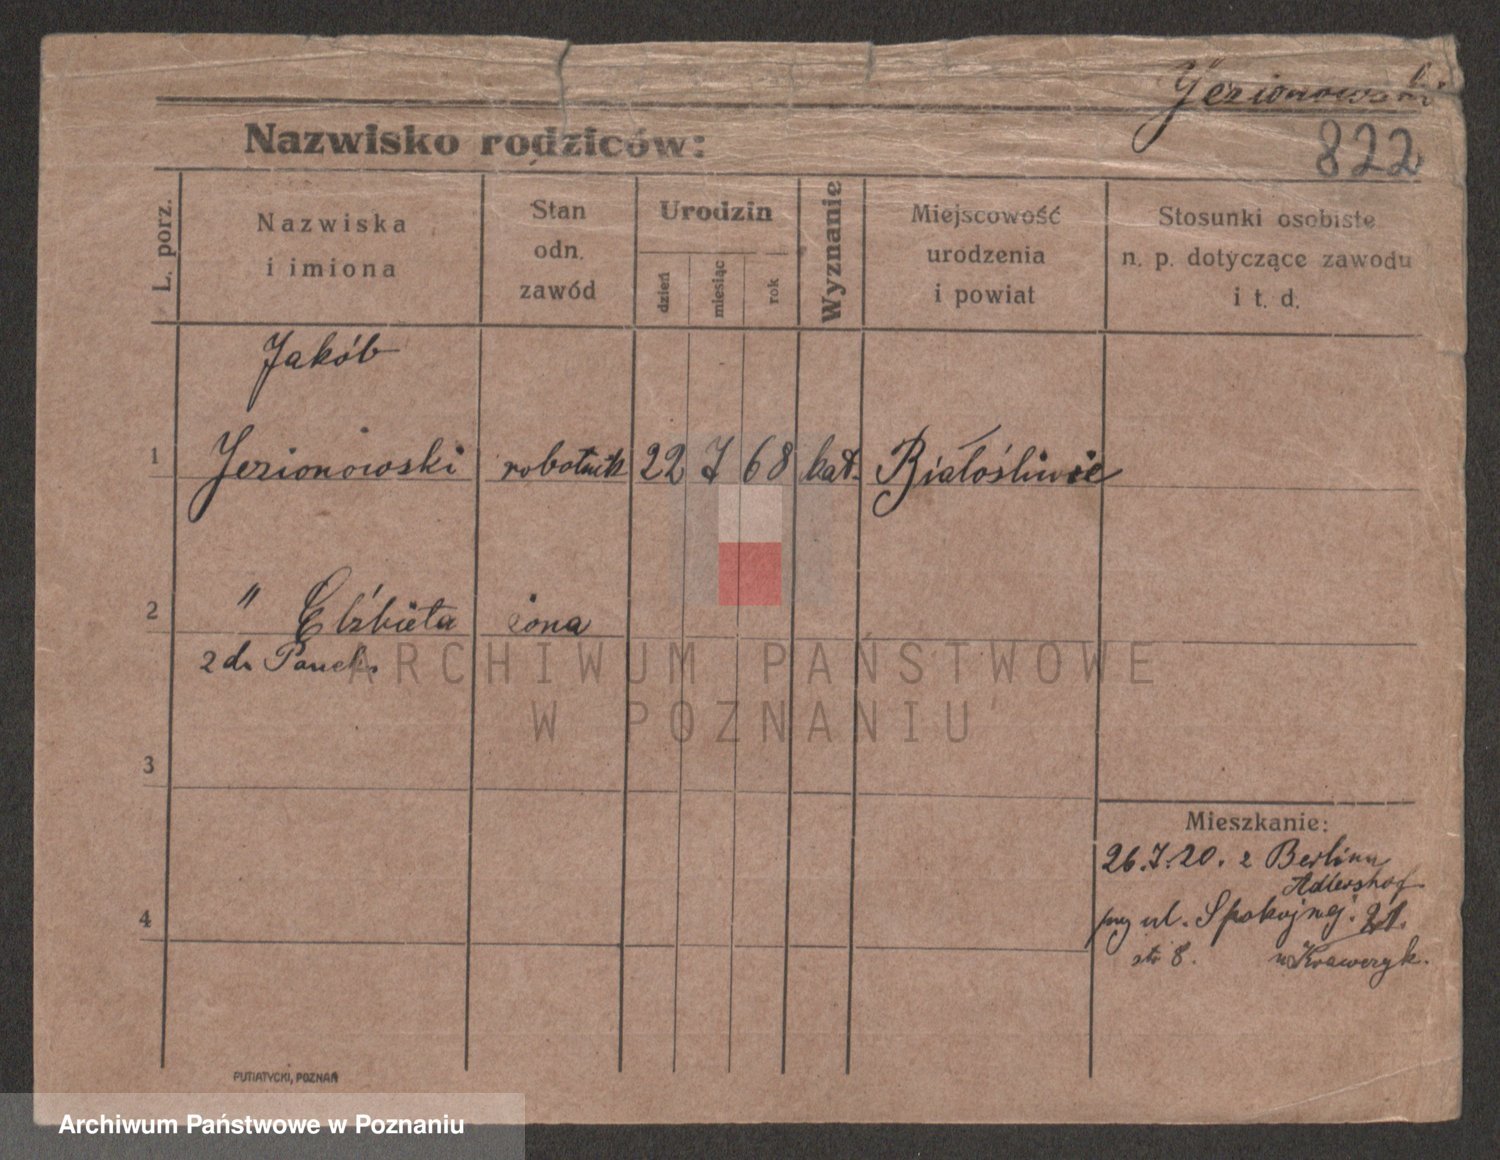 Jezionowski
822
Nazwisko rodziców:
L. porz.
Nazwiska
i imiona
Stan
odn.
zawód
Urodzin
dzień
miesiąc
rok
Wyznanie
Miejscowość
urodzenia
i powiat
Stosunki osobiste
n. p. dotyczące zawodu
i t. d.
Jakób
1 Jezionowski robotnik 22 7 68 kat. Białośliwie
2 " Elżbieta żona
2 d.
3
ARCHIWUM PAŃSTWOWE
W POZNANIU
Mieszkanie:
26.7.20. z Berlina
Adlershof
przy ul. Spokojnej. 21.
4
8. u Krawczyk.
PUTIATYCKI, POZNAŃ
Archiwum Państwowe w Poznaniu